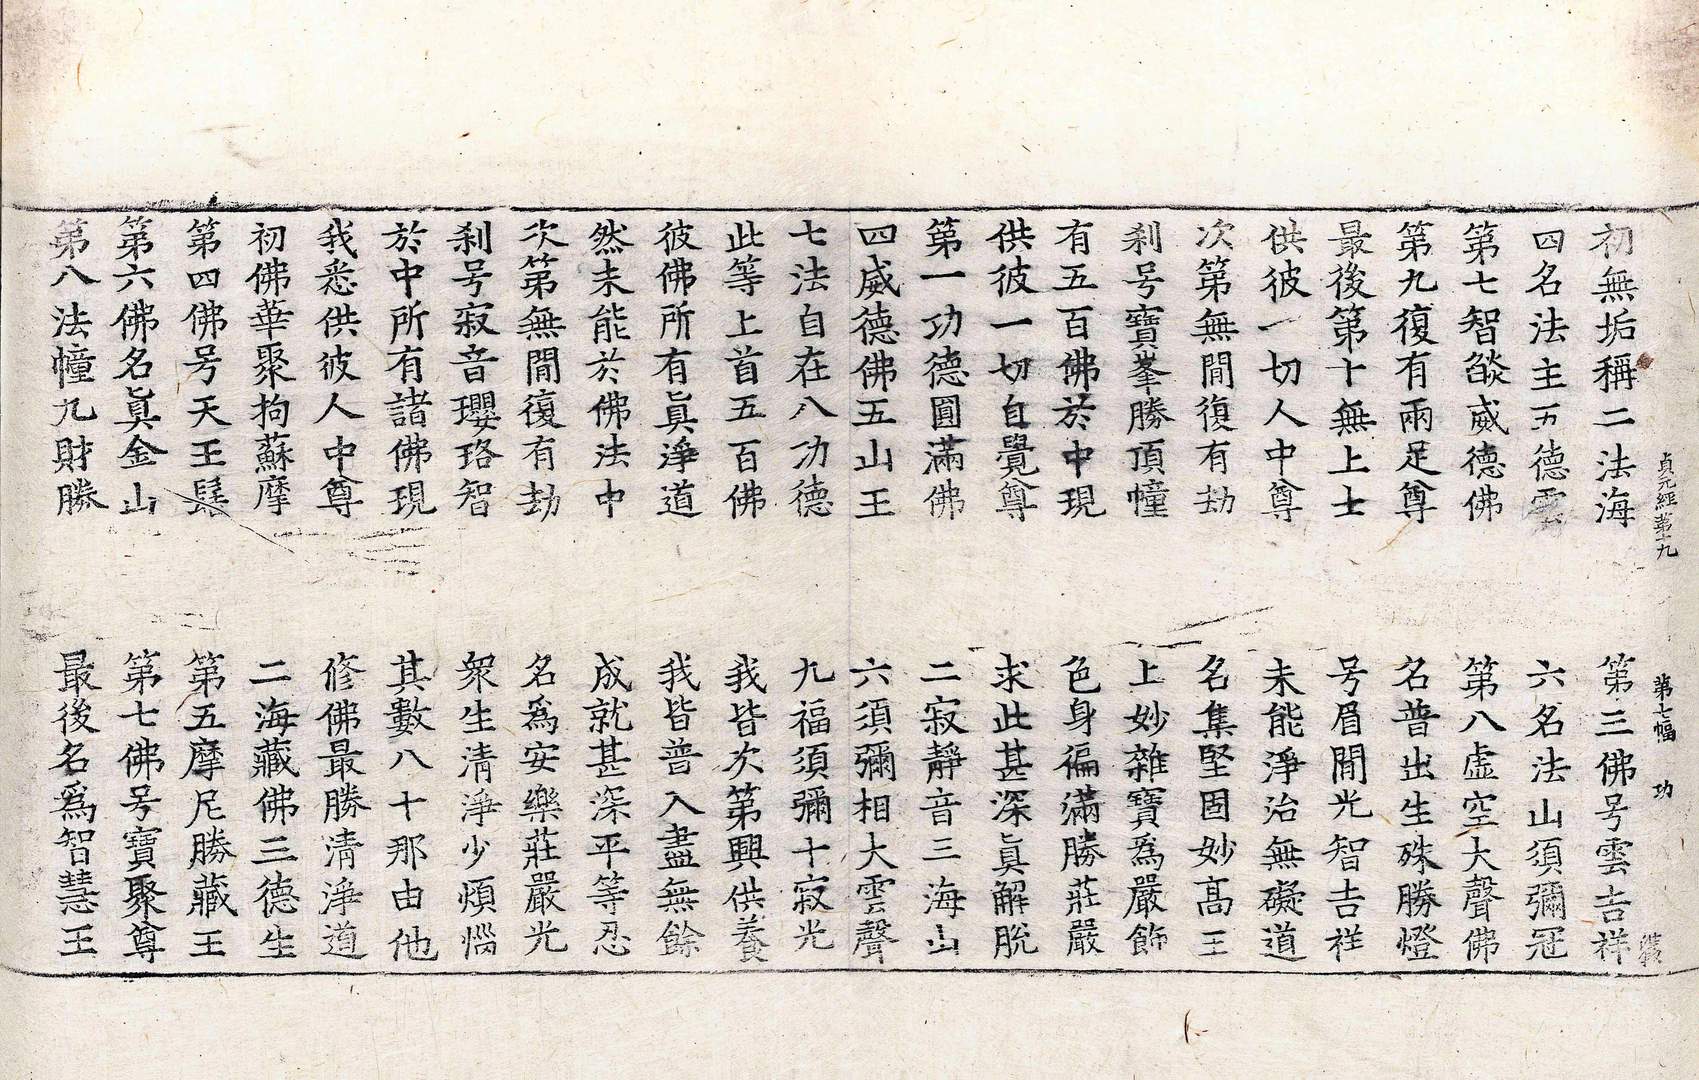 貞元經第十九　第七幅　功
初無垢稱二法海　第三佛号雲吉祥
四名法主五德雲　六名法山須彌冠
第七智燄威德佛　第八虛空大聲佛
第九復有兩足尊　名普出生殊勝燈
最後第十無上士　号眉間光智吉祥
供彼一切人中尊　未能淨治無礙道
次第無間復有劫　名集堅固妙高王
刹号寶峯勝頂幢　上妙雜寶爲嚴飾
有五百佛於中現　色身徧滿勝莊嚴
供彼一切自覺尊　求此甚深眞解脫
第一功德圓滿佛　二寂靜音三海山
四威德佛五山王　六須彌相大雲聲
七法自在八功德　九福須彌十寂光
此等上首五百佛　我皆次第興供養
彼佛所有眞淨道　我皆普入盡無餘
然未能於佛法中　成就甚深平等忍
次第無間復有劫　名爲安樂莊嚴光
刹号寂音瓔珞智　衆生清淨少煩惱
於中所有諸佛現　其數八十那由他
我悉供彼人中尊　修佛最勝清淨道
初佛華聚拘蘇摩　二海藏佛三德生
第四佛号天王髻　第五摩尼勝藏王
第六佛名眞金山　第七佛号寶聚尊
第八法幢九財勝　最後名爲智慧王